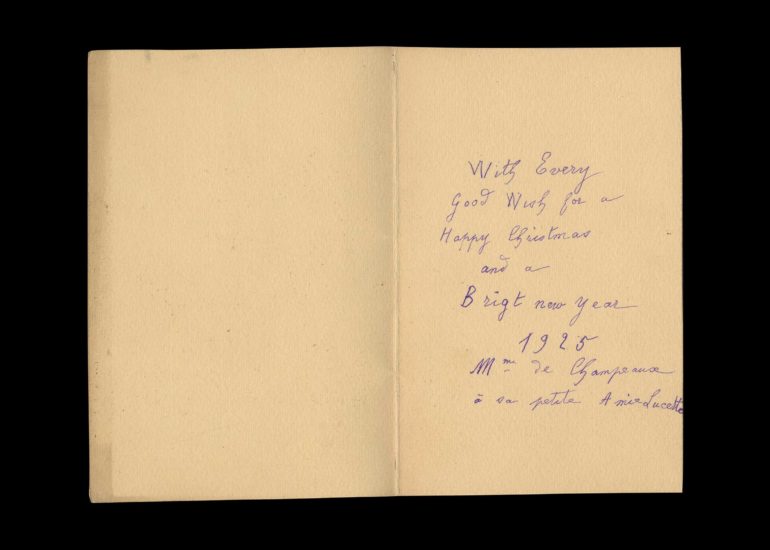 With Every
Good Wish for a
Happy Christmas
and a
Brigt new year
1925
Mme de Champeaux
à sa petite Amie Lucette